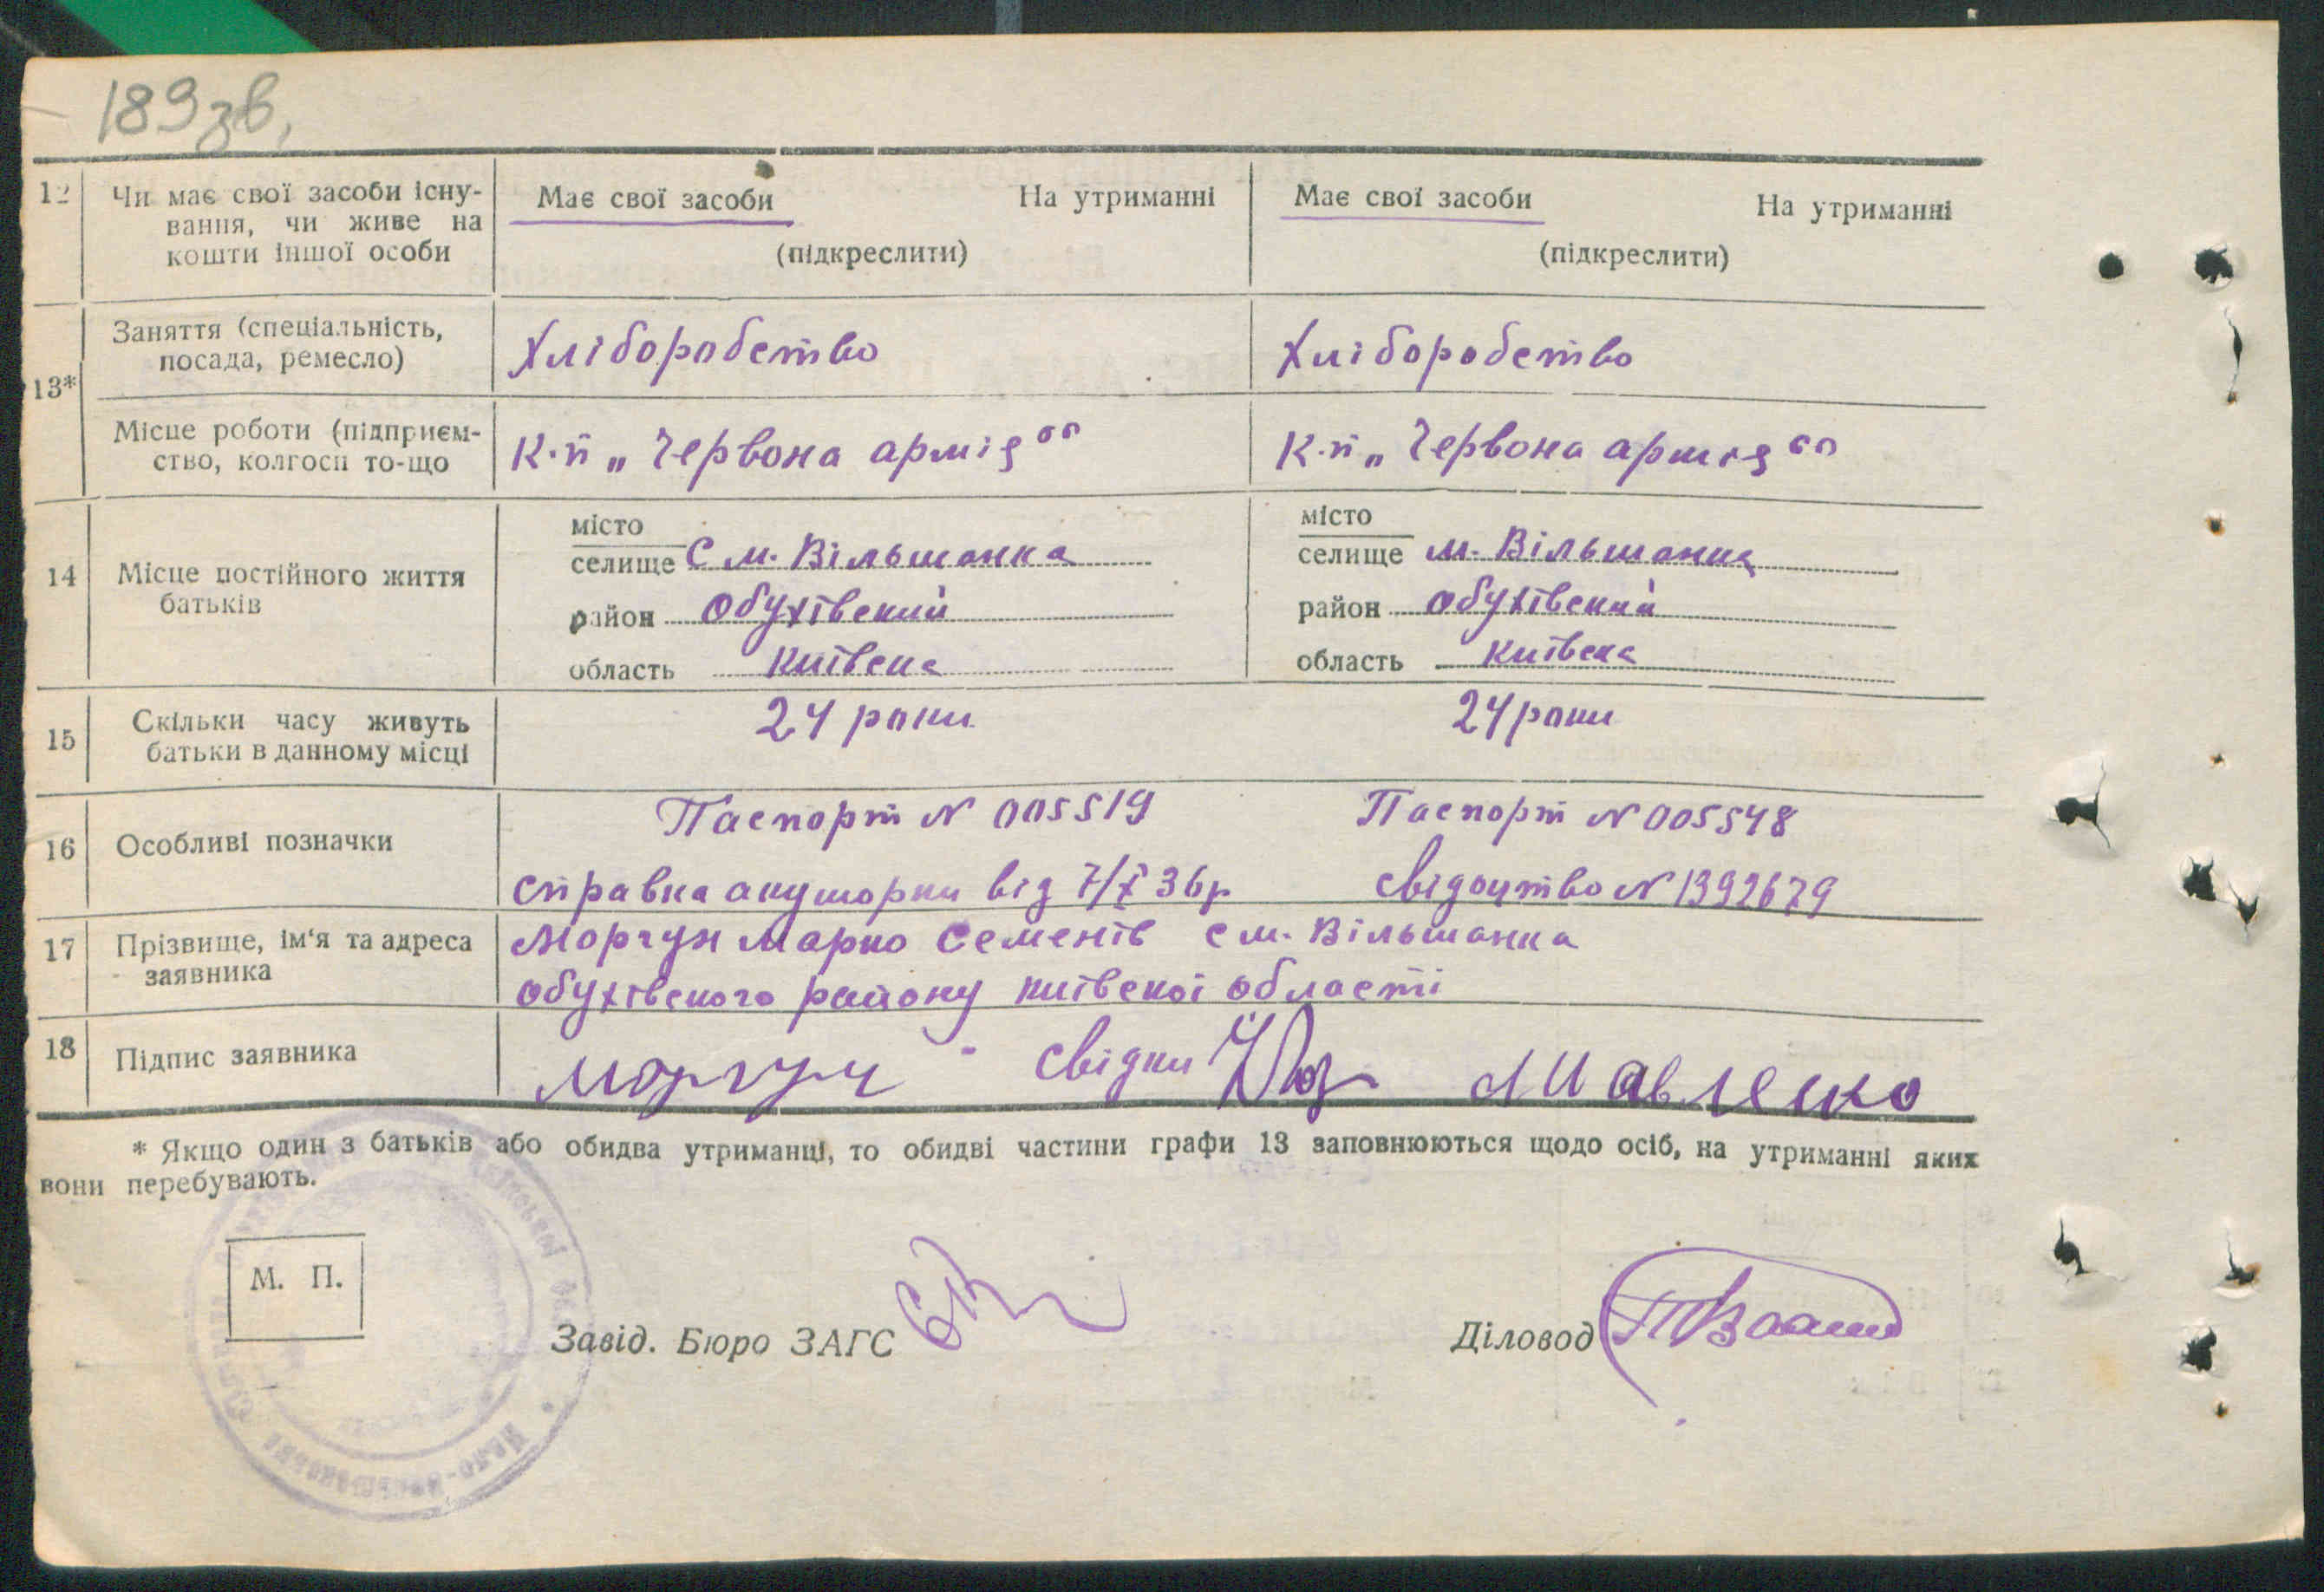 189зв.
12 Чи має свої засоби існу- Має свої засоби На утриманні Має свої засоби На утриманні
вання, чи живе на
кошти іншої особи (підкреслити) (підкреслити)
Заняття (спеціальність,
посада, ремесло) Хліборобство Хліборобство
13*
Місце роботи (підприєм-
ство, колгосп то-що К.п „Червона армія" К.п „Червона армія"
місто місто
селище С м. Вільшанка селище м. Вільшанка
14 Місце постійного життя
батьків район Обухівский район Обухівский
область Київска область Київска
15 Скільки часу живуть 24 роки 24 роки
батьки в данному місці
Паспорт N 005519 Паспорт N 005548
16 Особливі позначки
справка акушорки від 7/X 36р свідоцтво N 1392679
17 Прізвище, ім'я та адреса Моргун Марко Семенів с м. Вільшанка
заявника обухівского району київскої області
18 Підпис заявника Моргун свідки
* Якщо один з батьків або обидва утриманці, то обидві частини графи 13 заповнюються щодо осіб, на утриманні яких
вони перебувають.
М. П.
Завід. Бюро ЗАГС Діловод